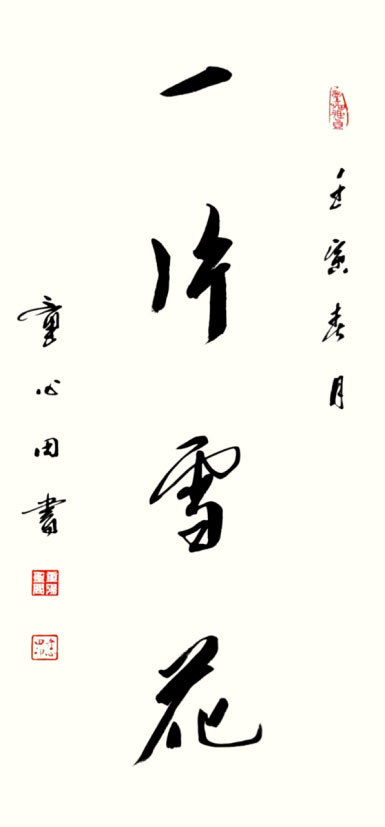 壬寅春月
一片雪花
童心田書